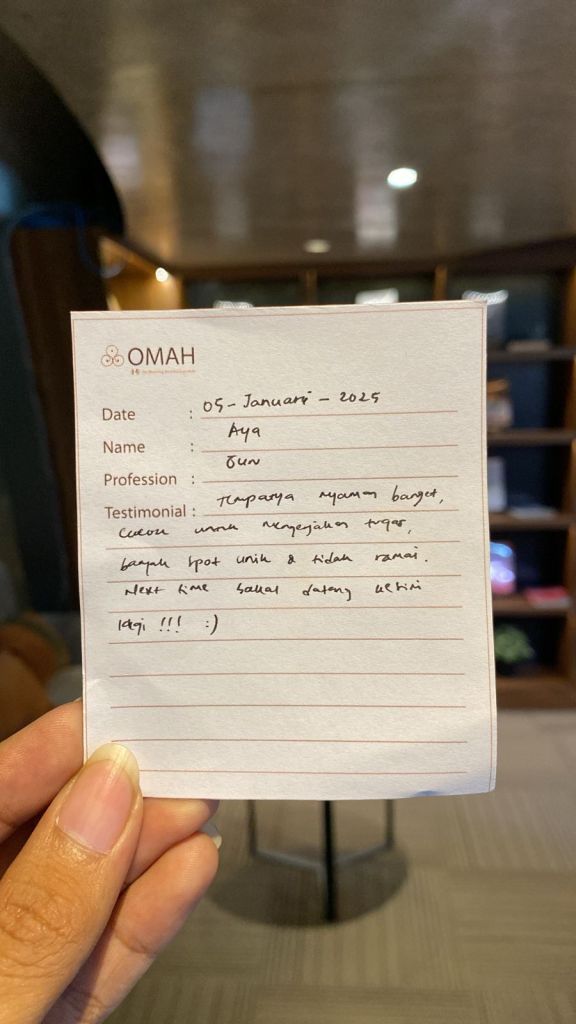 OMAH
Date : 05 - Januari - 2025
Name : Aya
Profession :
Testimonial : Tempatnya nyaman banget,
cocok untuk mengerjakan tugas,
banyak spot unik & tidak ramai.
Next time bakal datang kesini
lagi !!! :)